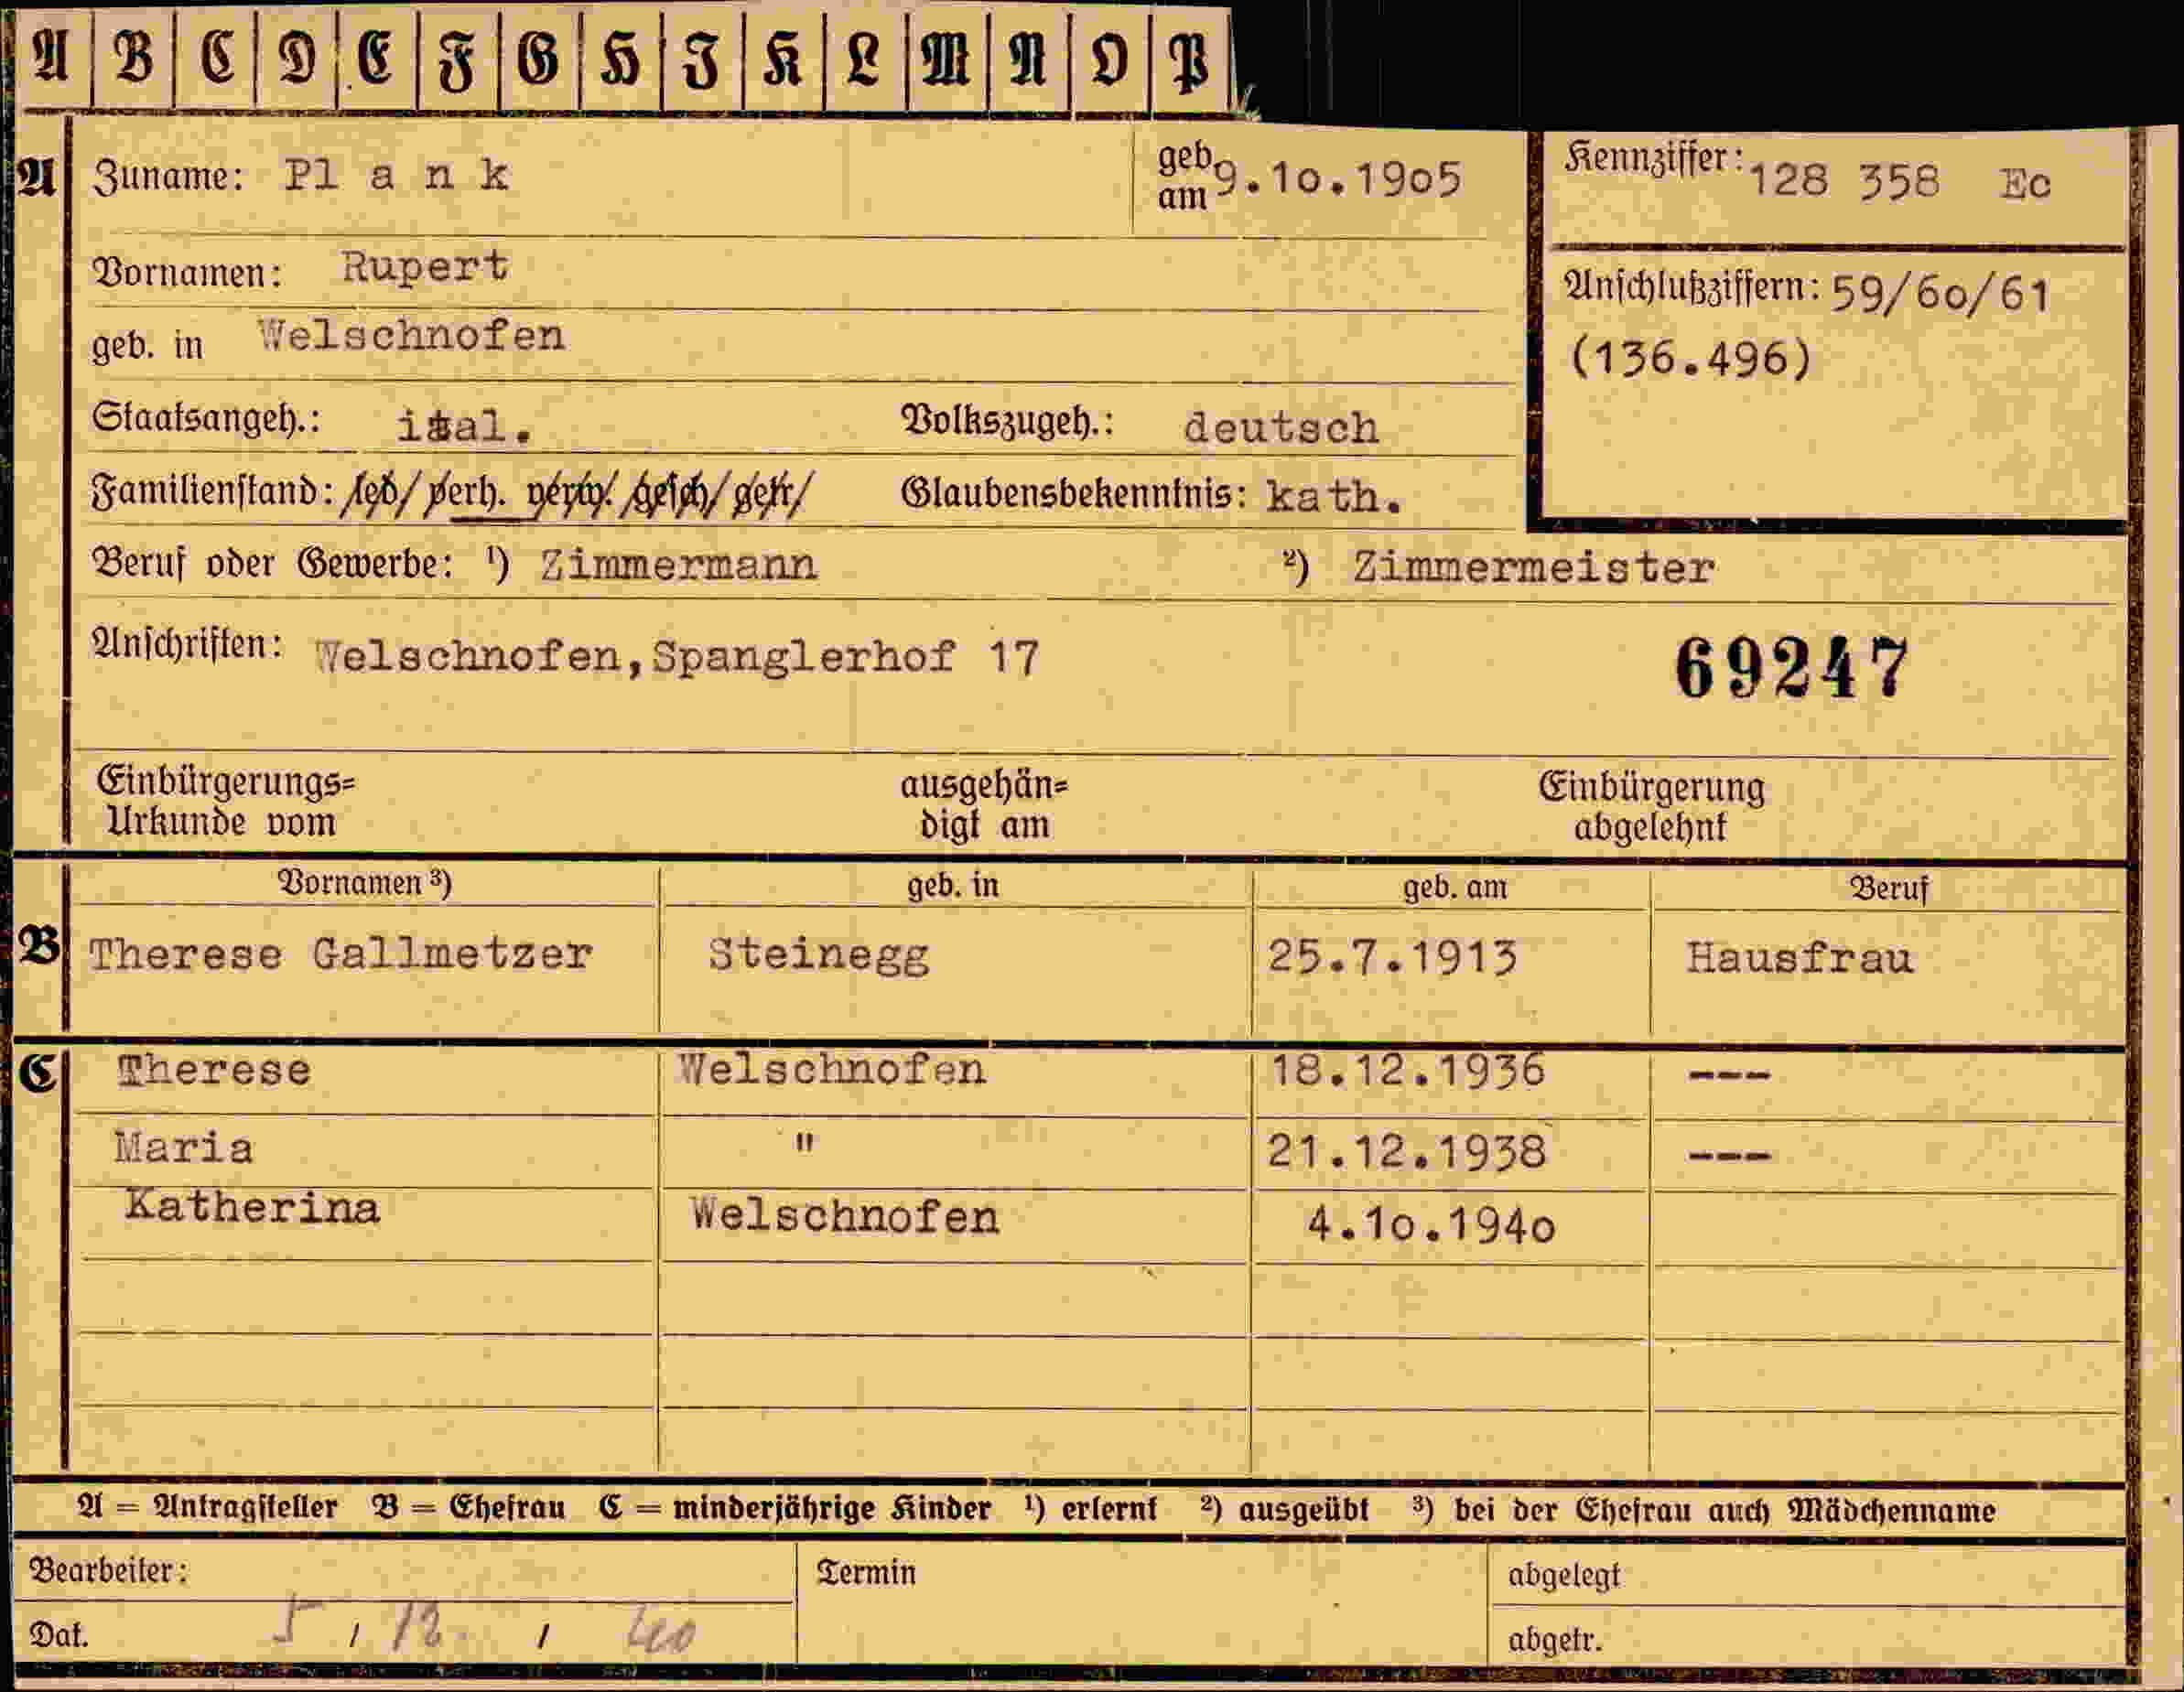 A B C D E F G H I K L M N O P
A Zuname: Pl a n k geb. am 9.10.1905 Kennziffer: 128 358 Ec
Vornamen: Rupert
Anschlußziffern: 59/60/61
geb. in Welschnofen
(136.496)
Staatsangeh.: ital. Volkszugeh.: deutsch
Familienstand: led/ verh. verw. gesch/ getr/ Glaubensbekenntnis: kath.
Beruf oder Gewerbe: ¹) Zimmermann ²) Zimmermeister
Anschriften: Welschnofen, Spanglerhof 17 69247
Einbürgerungs= ausgehän= Einbürgerung
Urkunde vom digt am abgelehnt
Vornamen ³) geb. in geb. am Beruf
B Therese Gallmetzer Steinegg 25.7.1913 Hausfrau
C Therese Welschnofen 18.12.1936 ---
Maria " 21.12.1938 ---
Katherina Welschnofen 4.10.1940
A = Antragsteller B = Ehefrau C = minderjährige Kinder ¹) erlernt ²) ausgeübt ³) bei der Ehefrau auch Mädchenname
Bearbeiter: Termin abgelegt
Dat. 5 / 12. / 40 abgetr.